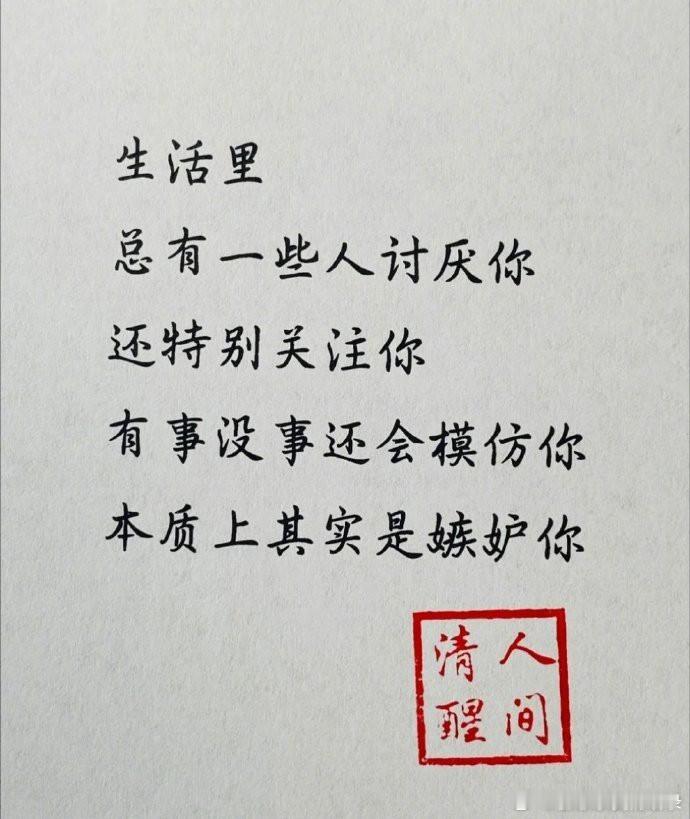 生活里
总有一些人讨厌你
还特别关注你
有事没事还会模仿你
本质上其实是嫉妒你
人间
清醒